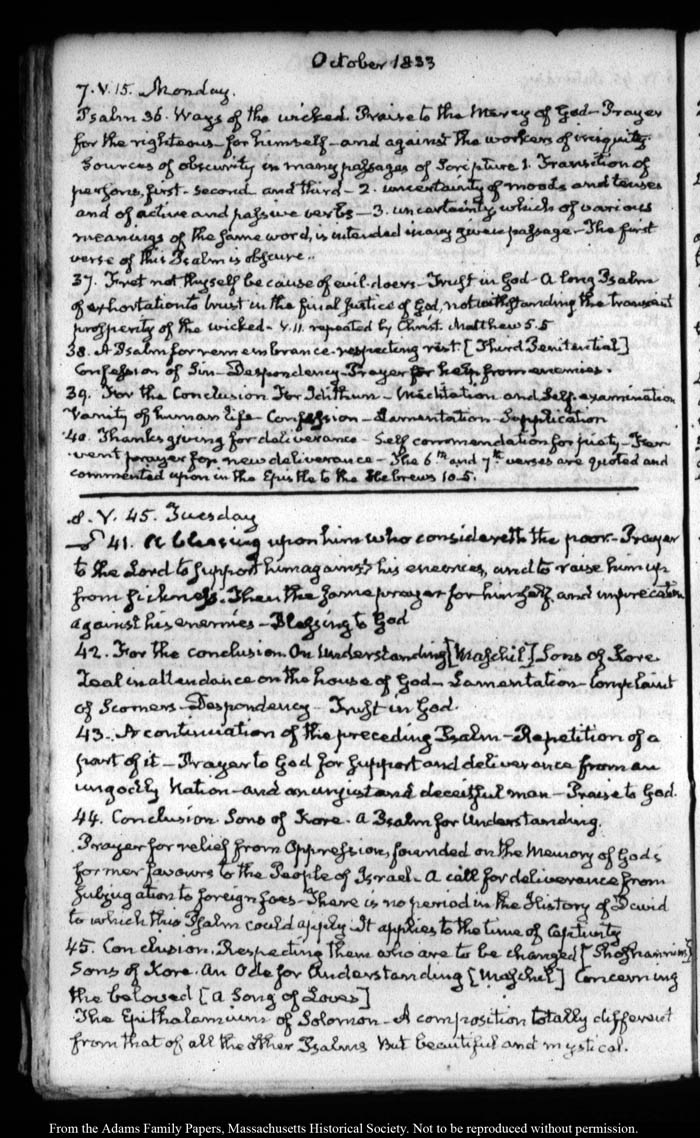 October 1833
7. V. 15. Monday.
Psalm 36. Ways of the wicked. Praise to the Mercy of God - Prayer
for the righteous - for himself - and against the workers of iniquity.
Sources of obscurity in many passages of Scripture 1. Transition of
persons, first - second and third - 2. uncertainty of moods and tenses
and of active and passive verbs - 3. uncertainty which of various
meanings of the same word, is intended in any given passage - The first
verse of this Psalm is obscure..
37. Fret not thyself because of evil-doers - Trust in God - A long Psalm
of exhortation to trust in the final Justice of God, notwithstanding the transient
prosperity of the wicked - V. 11. repeated by Christ. Matthew 5.5
38. A Psalm for remembrance - respecting rest [Third Penitential]
Confession of Sin - Despondency - Prayer for help from enemies.
39. For the Conclusion For Idithun - Meditation and Self-examination
Vanity of human life - Confession - Lamentation - Supplication
40. Thanksgiving for deliverance - Self commendation for piety - Fer-
vent prayer for new deliverance - The 6th and 7th verses are quoted and
commented upon in the Epistle to the Hebrews 10.5.
8. V. 45. Tuesday
41. A blessing upon him who considereth the poor - Prayer
to the Lord to support him against his enemies, and to raise him up
from sickness. Then the same prayer for himself and imprecation
against his enemies - Blessing to God
42. For the conclusion. On Understanding [Maschil] Sons of Kore
Zeal in attendance on the house of God - Lamentation - Complaint
of Scorners - Despondency - Trust in God.
43. A continuation of the preceding Psalm - Repetition of a
part of it - Prayer to God for support and deliverance from an
ungodly Nation - and an unjust and deceitful man - Praise to God.
44. Conclusion. Sons of Kore. A Psalm for Understanding.
Prayer for relief from Oppression, founded on the Memory of Gods
former favours to the People of Israel. A call for deliverance from
subjugation to foreign foes - There is no period in the History of David
to which this Psalm could apply. It applies to the time of Captivity
45. Conclusion. Respecting them who are to be changed [Shoshannim]
Sons of Kore. An Ode for Understanding [Maschil] Concerning
the beloved [A Song of Loves]
The Epithalamium of Solomon - A composition totally different
from that of all the other Psalms But beautiful and mystical.
From the Adams Family Papers, Massachusetts Historical Society. Not to be reproduced without permission.